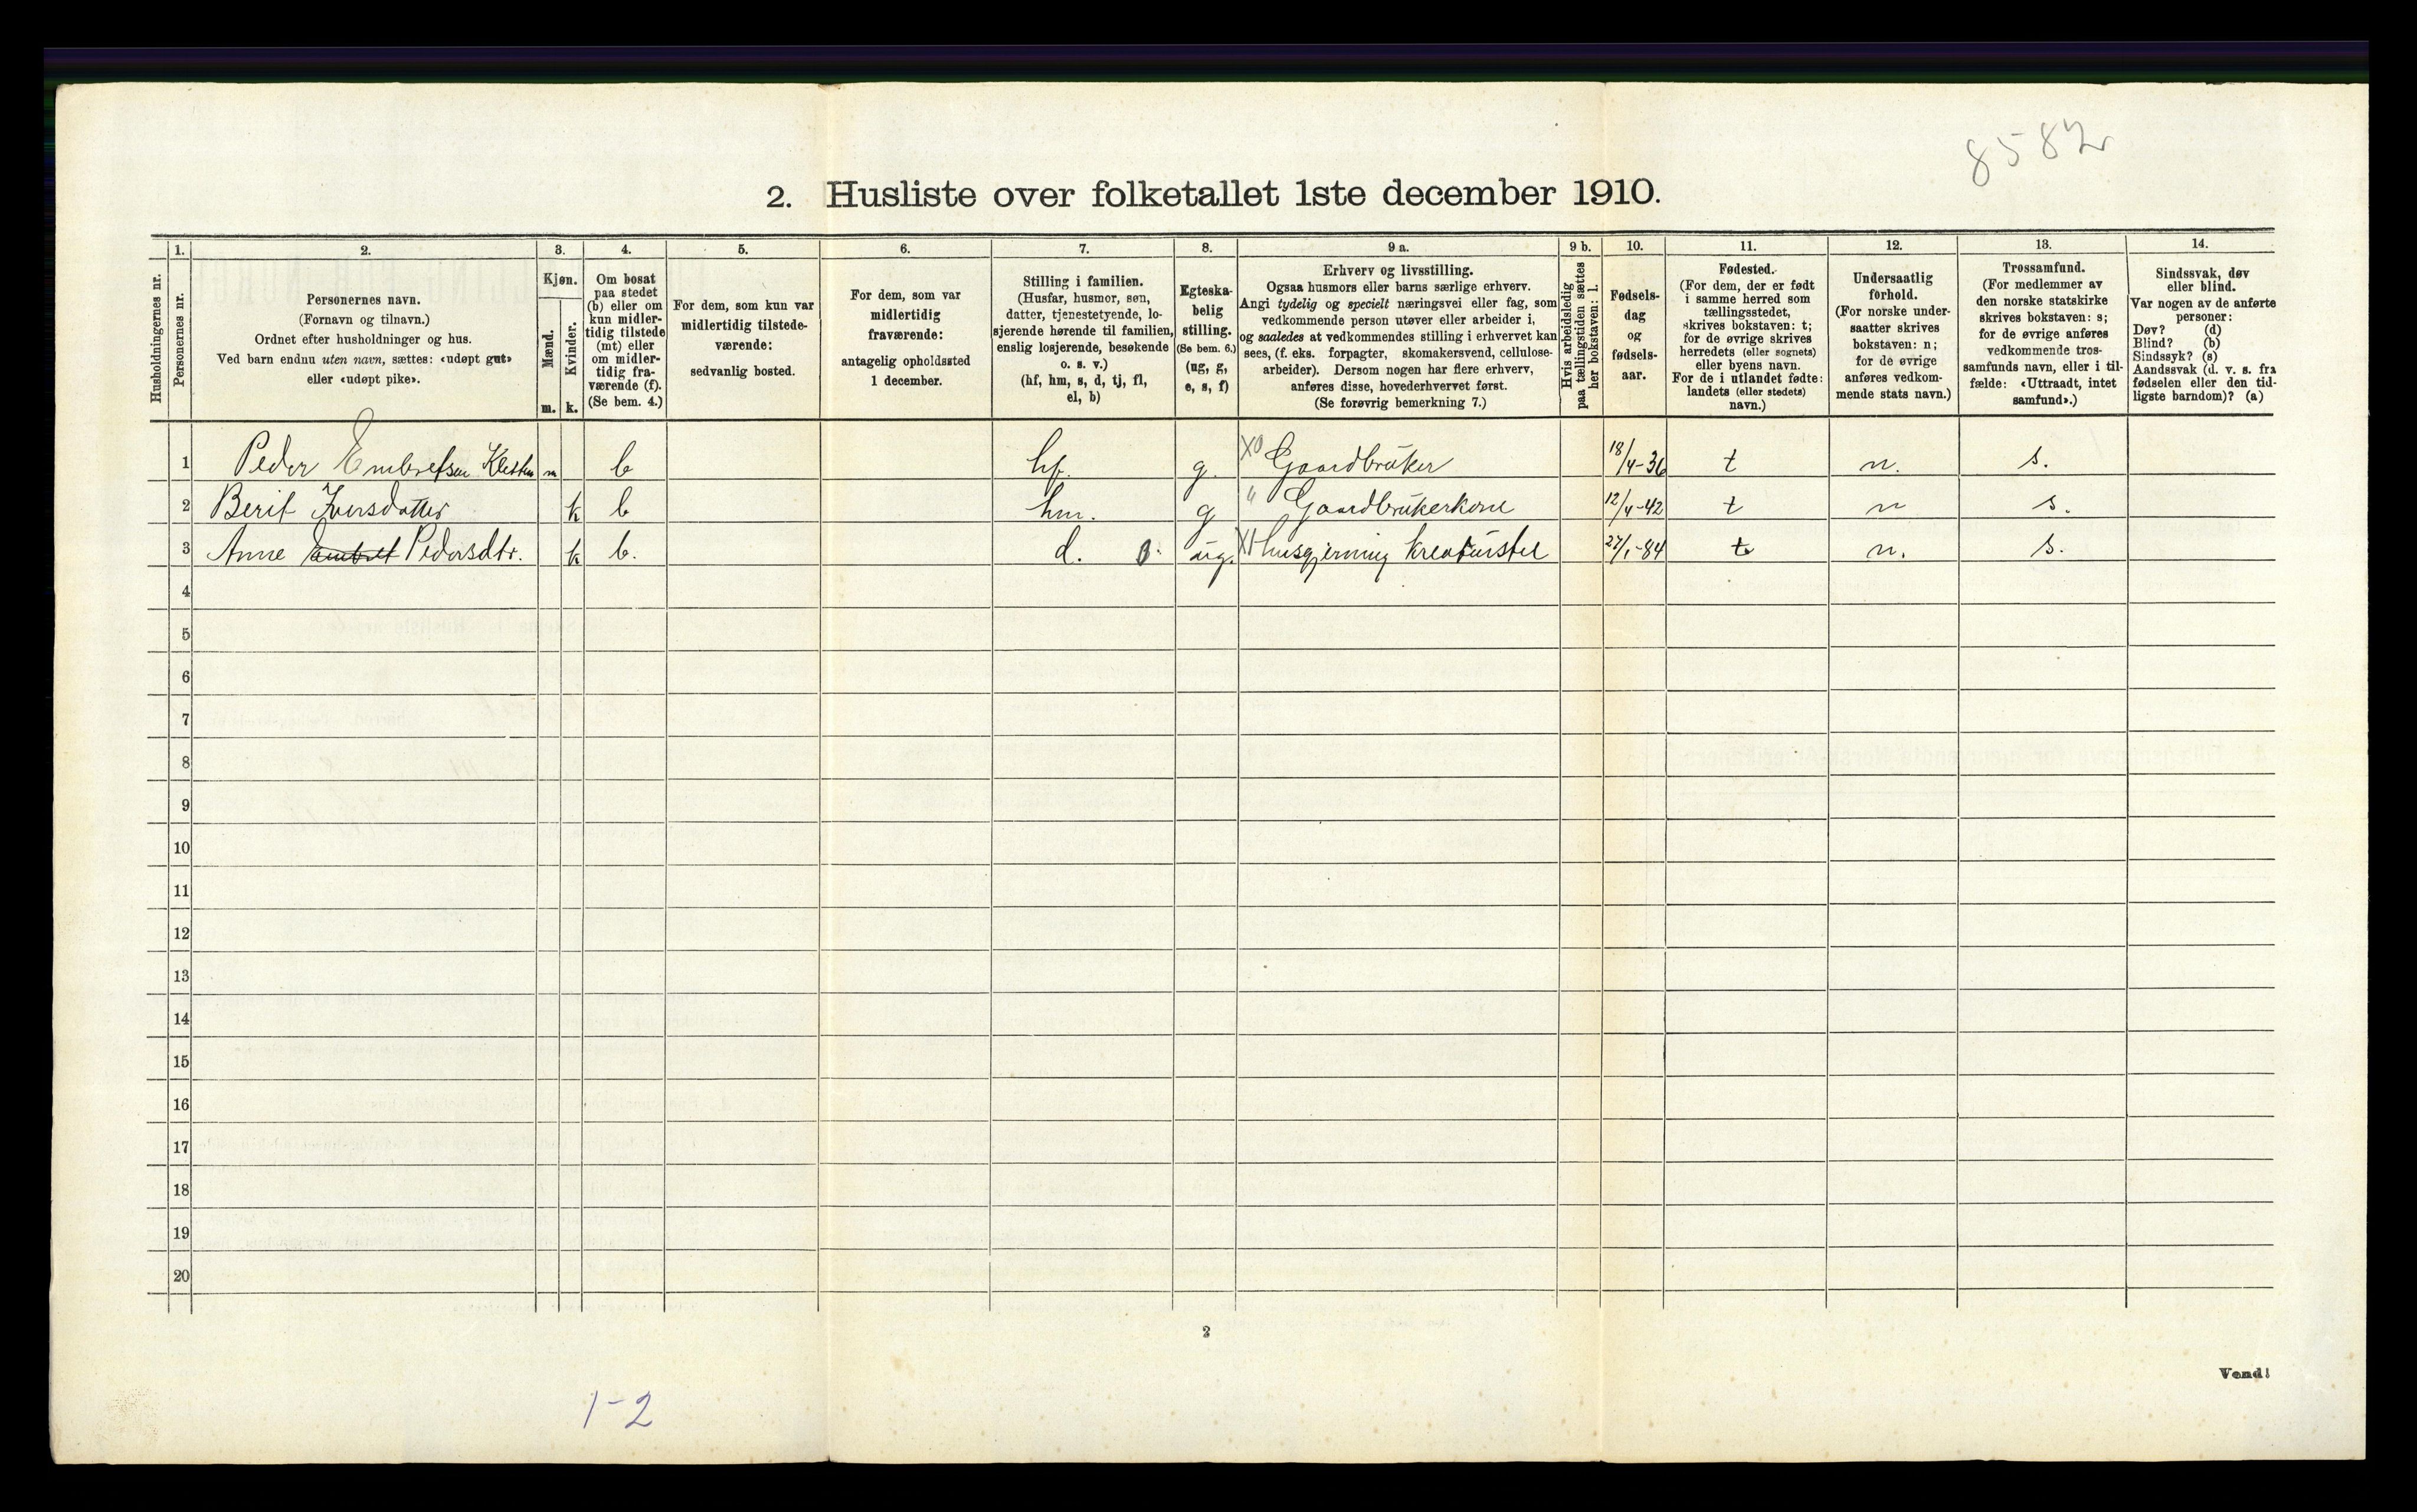 8582
2. Husliste over folketallet 1ste december 1910.
Husholdningernes nr.
1. Personernes nr.
2. Personernes navn.
(Fornavn og tilnavn.)
Ordnet efter husholdninger og hus.
Ved barn endnu uten navn, sættes: «udøpt gut»
eller «udøpt pike».
3. Kjøn.
Mænd. m.
Kvinder. k.
4. Om bosat
paa stedet
(b) eller om
kun midler-
tidig tilstede
(mt) eller
om midler-
tidig fra-
værende (f).
(Se bem. 4.)
5. For dem, som kun var
midlertidig tilstede-
værende:
sedvanlig bosted.
6. For dem, som var
midlertidig
fraværende:
antagelig opholdssted
1 december.
7. Stilling i familien.
(Husfar, husmor, søn,
datter, tjenestetyende, lo-
sjerende hørende til familien,
enslig losjerende, besøkende
o. s. v.)
(hf, hm, s, d, tj, fl,
el, b)
8. Egteska-
belig
stilling.
(Se bem. 6.)
(ug, g,
e, s, f)
9 a. Erhverv og livsstilling.
Ogsaa husmors eller barns særlige erhverv.
Angi tydelig og specielt næringsvei eller fag, som
vedkommende person utøver eller arbeider i,
og saaledes at vedkommendes stilling i erhvervet kan
sees, (f. eks. forpagter, skomakersvend, cellulose-
arbeider). Dersom nogen har flere erhverv,
anføres disse, hovederhvervet først.
(Se forøvrig bemerkning 7.)
9 b. Hvis arbeidsledig
paa tællingstiden sættes
her bokstaven: l.
10. Fødsels-
dag
og
fødsels-
aar.
11. Fødested.
(For dem, der er født
i samme herred som
tællingsstedet,
skrives bokstaven: t;
for de øvrige skrives
herredets (eller sognets)
eller byens navn.
For de i utlandet fødte:
landets (eller stedets)
navn.)
12. Undersaatlig
forhold.
(For norske under-
saatter skrives
bokstaven: n;
for de øvrige
anføres vedkom-
mende stats navn.)
13. Trossamfund.
(For medlemmer av
den norske statskirke
skrives bokstaven: s;
for de øvrige anføres
vedkommende tros-
samfunds navn, eller i til-
fælde: «Uttraadt, intet
samfund».)
14. Sindssvak, døv
eller blind.
Var nogen av de anførte
personer:
Døv? (d)
Blind? (b)
Sindssyk? (s)
Aandssvak (d. v. s. fra
fødselen eller den tid-
ligste barndom)? (a)
1 Peder Embretsen m b hf. g. X0 Gaardbruker 18/4-36 t n. s.
2 Berit Iversdatter k b hm. g " Gaardbrukerkone 12/4-42 t n s.
3 Anne Pedersdtr. k b. d. ug. husgjerning kreaturstel 27/1-84 t n. s.
4
5
6
7
8
9
10
11
12
13
14
15
16
17
18
19
20
2
Vend!
1-2